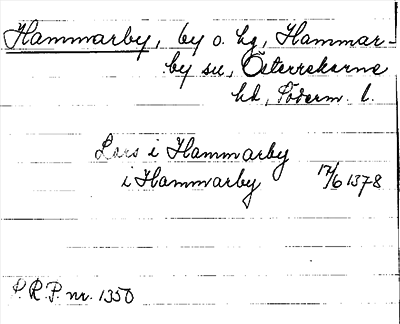 Hammarby, by o. hg, Hammar-
by sn, Österrekarne
hd, Söderm. l.
Lars i Hammarby
i Hammarby 17/6 1378
P.R.P. nr. 1350